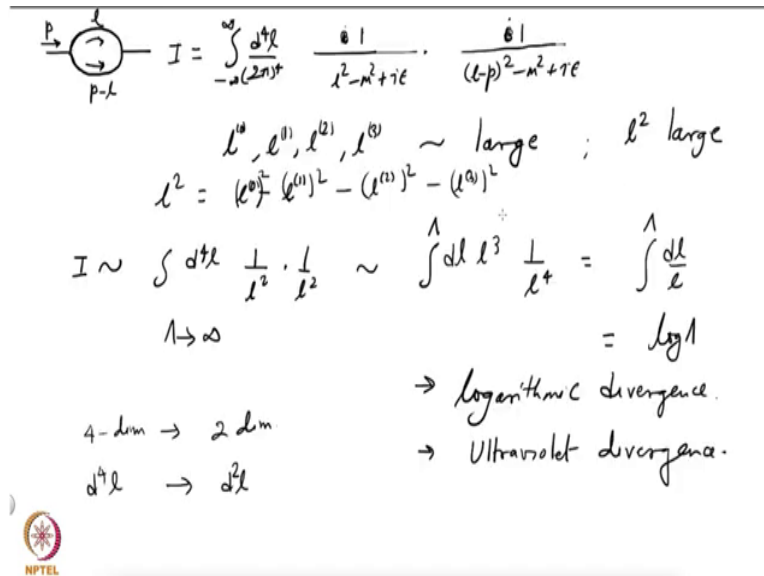 p l p-l I = ∫_{-∞}^{∞} d⁴l/(2π)⁴ 1/(l²-m²+iε) · 1/((l-p)²-m²+iε)
l⁽⁰⁾, l⁽¹⁾, l⁽²⁾, l⁽³⁾ ~ large ; l² large
l² = (l⁽⁰⁾)² - (l⁽¹⁾)² - (l⁽²⁾)² - (l⁽³⁾)²
I ~ ∫ d⁴l 1/l² · 1/l² ~ ∫^Λ dl l³ 1/l⁴ = ∫^Λ dl/l
Λ→∞ = log Λ
→ logarithmic divergence.
4-dim → 2 dim
→ Ultraviolet divergence.
d⁴l → d²l
NPTEL